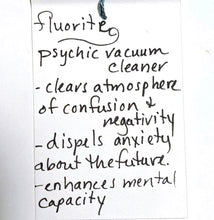 fluorite
psychic vacuum
cleaner
- clears atmosphere
of confusion &
negativity
- dispels anxiety
about the future.
- enhances mental
capacity